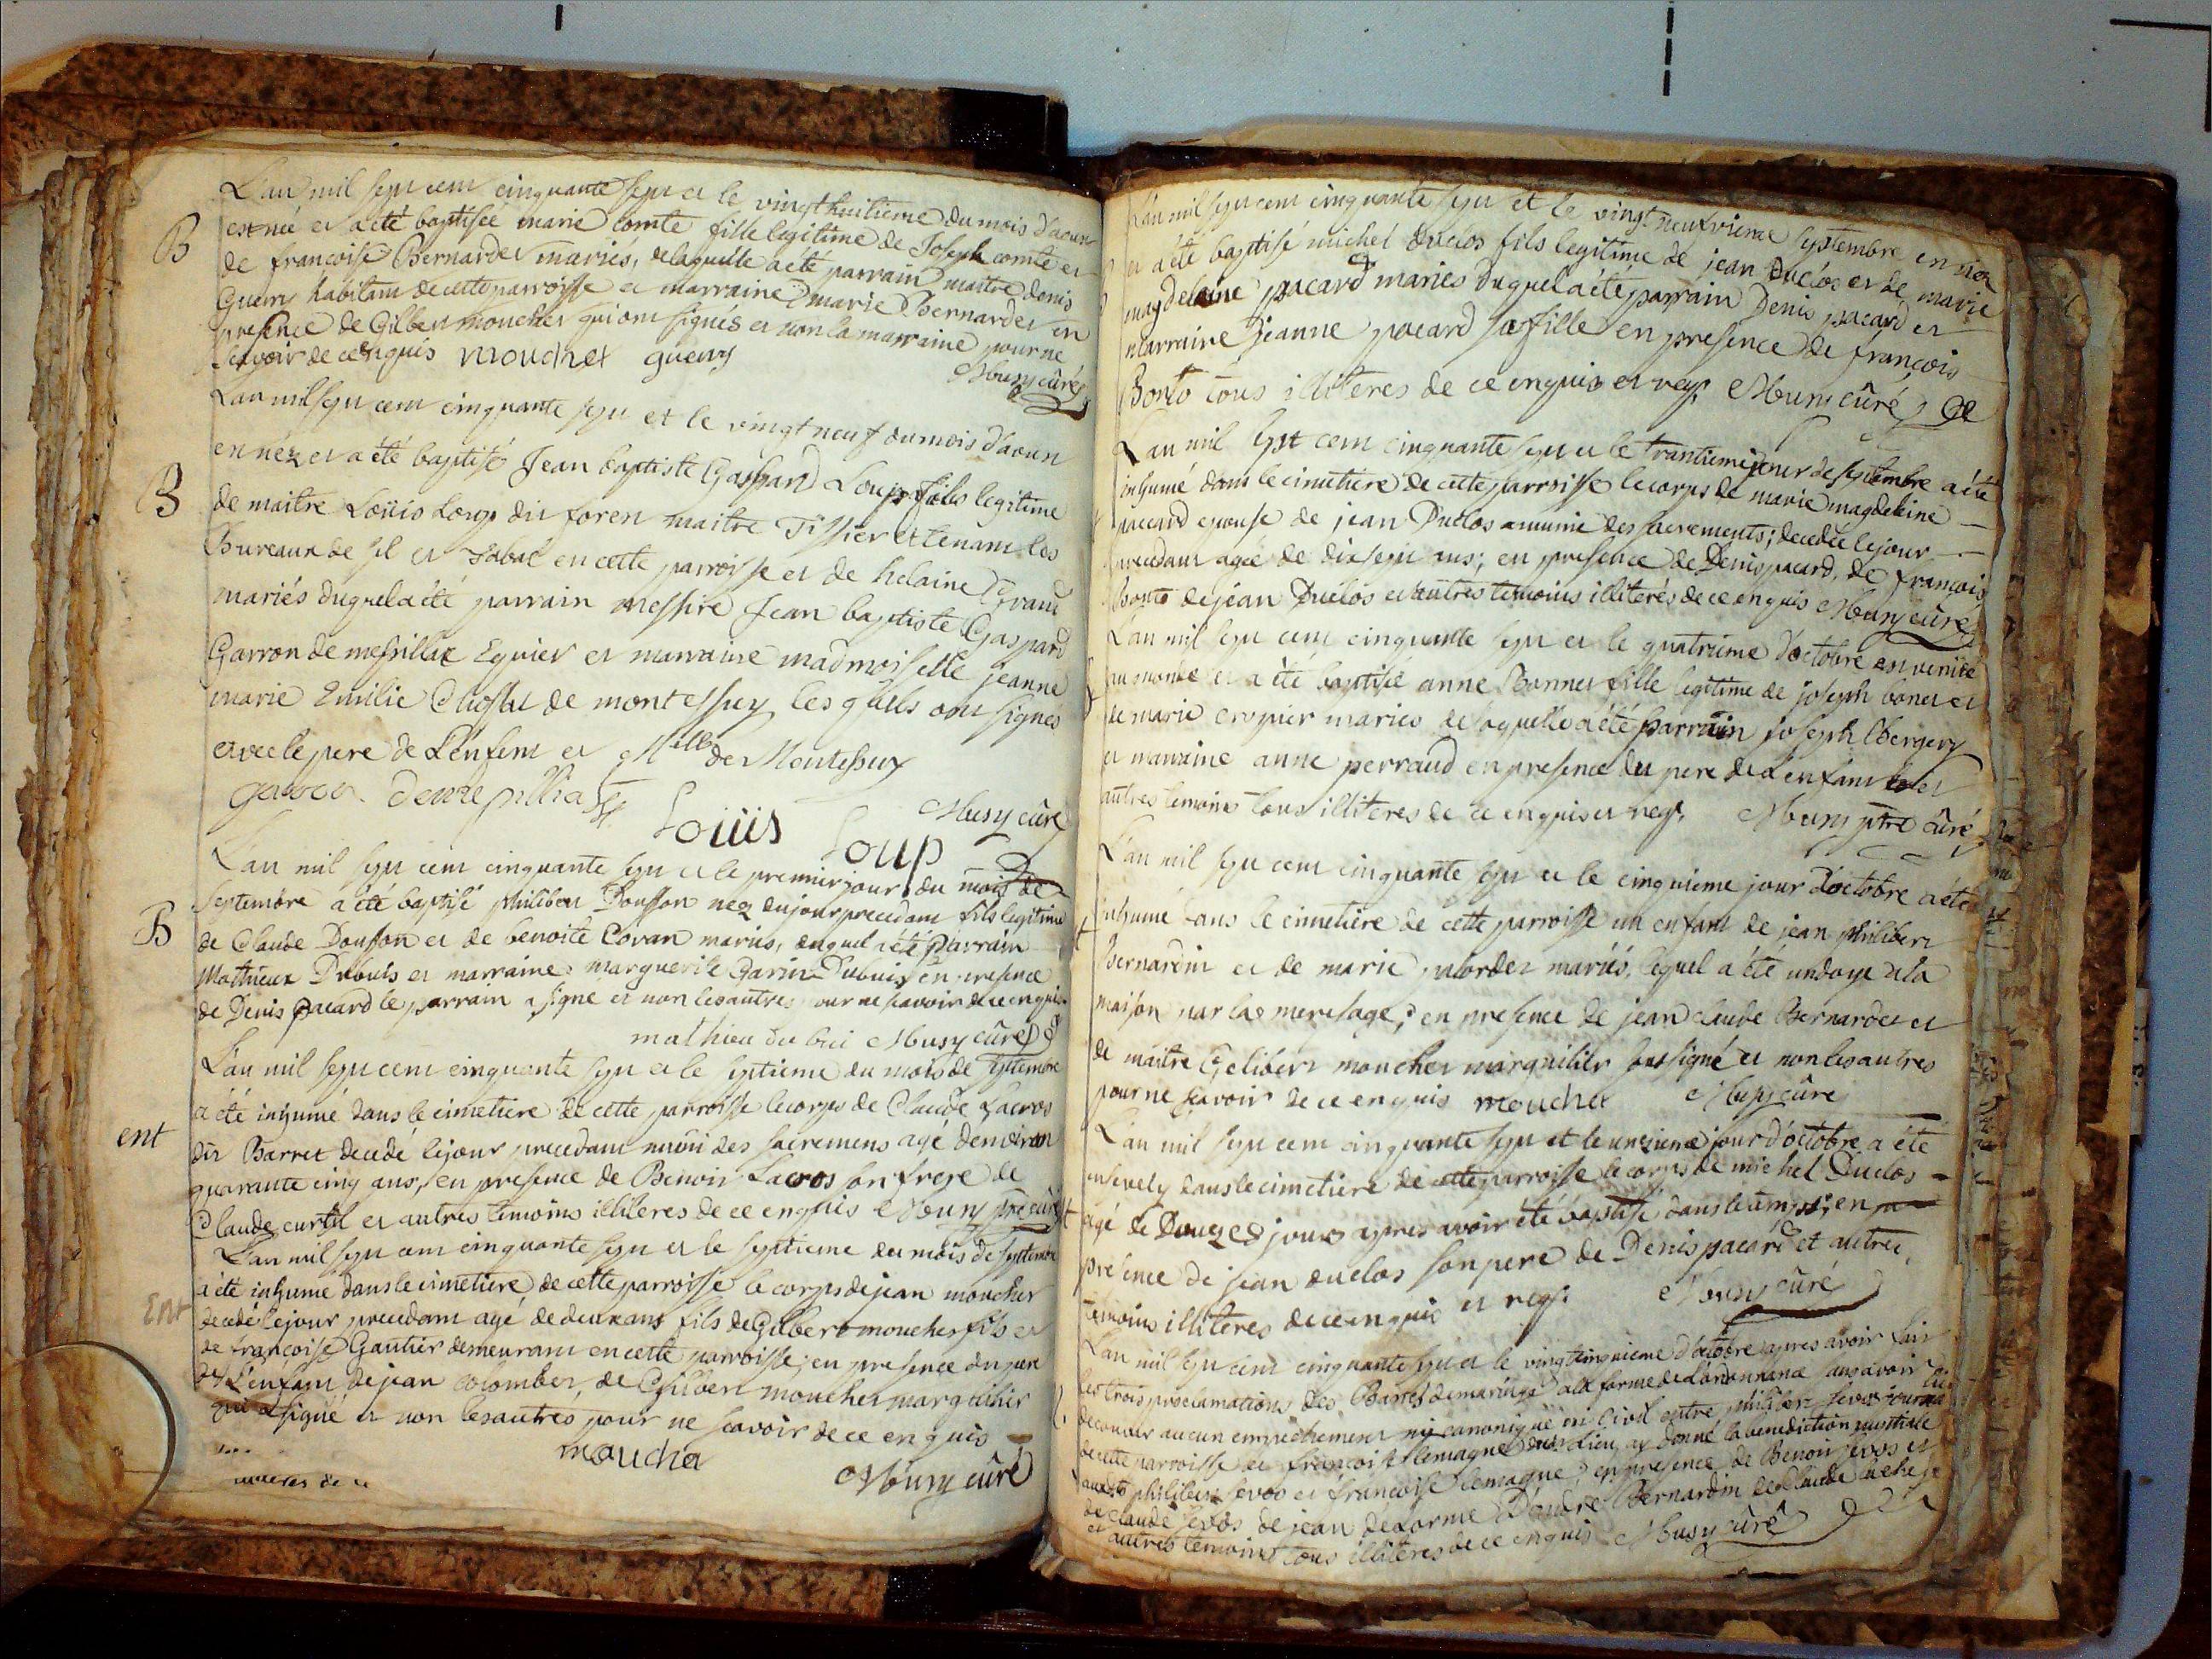 L'an mil sept cent cinquante sept et le vingt huitieme du mois d'aoust
B
est née et a été baptisée marie comte fille legitime de Joseph comte et
de francoise Bernardet mariés, de laquelle a été parrain maitre denis
Guerry habitant de cette parroisse et marraine marie Bernardet en
presence de Gilbert mouchet qui ont signés et non la marraine pour ne
scavoir de ce enquis mouchet guerry
Musy curé
L'an mil sept cent cinquante sept et le vingt neuf du mois d'aoust
est néz et a été baptisé Jean baptiste Gaspard Loup fils legitime
B
de maitre Loüis Loup dit foren maitre Tissier et tenant les
Bureaux de sel et Tabac en cette parroisse et de helaine Grand
mariés duquel a été parrain messire Jean baptiste Gaspard
Garron de messillac Equier et marraine madmoiselle jeanne
marie Emilie de montessuy les quels ont signés
avec le pere de L'enfent et Mlle de Montessuy
garron
Musy curé
Loüis Loup
L'an mil sept cent cinquante sept et le premier jour du mois de
Septembre a été baptisé philibert Dousson nez du jour precedant fils legitime
B
de Claude Dousson et de benoite Covan mariés, duquel a été parrain
Mathieux Dubuis et marraine marguerite Garin Dubuis en presence
de Denis pacard le parrain a signé et non les autres pour ne scavoir de ce enquis
mathieu du bui Musy curé
L'an mil sept cent cinquante sept et le septieme du mois de septembre
a été inhumé dans le cimetiere de cette parroisse le corps de Claude Lacros
ent
dit Barret decedé le jour precedant muni des sacremens agé d'environ
quarante cinq ans, en presence de Benoit Lacros son frere de
Claude curtil et autres temoins illiteres de ce enquis Musy ptre curé
L'an mil sept cent cinquante sept et le septieme du mois de septembre
a été inhumé dans le cimetiere de cette parroisse le corps de jean mouchet
Ent
decedé le jour precedant agé de deux ans fils de Gilbert mouchet fils et
de francoise Gautier demeurant en cette parroisse; en presence du pere
de L'enfant de jean colombet, de Gilbert mouchet marguilier
qui a signé et non les autres pour ne scavoir de ce enquis
mouchet
Musy curé
L'an mil sept cent cinquante sept et le vingt neufvieme septembre est nez
et a été baptisé michel duclos fils legitime de jean Duclos et de marie
magdelaine pacard mariés duquel a été parrain Denis pacard et
marraine jeanne pacard sa fille en presence de françois
Bonto tous illiteres de ce enquis et reqs Musy curé
L'an mil sept cent cinquante sept et le trantieme jour de septembre a été
inhumé dans le cimetiere de cette parroisse le corps de marie magdelaine
paccard epouse de jean Duclos amunie des sacrements; decedée le jour
precedant agée de dix sept ans; en presence de Denis pacard, de françois
Bonto de jean Duclos et autres temoins illiterés de ce enquis Musy curé
L'an mil sept cent cinquante sept et le quatrieme d'octobre est venüe
au monde et a été baptisé anne Bonnet fille legitime de joseph bonet et
de marie cropier mariés de laquelle a été parrain joseph Bergery
et marraine anne perraud en presence du pere de L'enfant et
autres temoins tous illiteres de ce enquis et reqs Musy ptre curé
L'an mil sept cent cinquante sept et le cinquieme jour d'octobre a été
inhumé dans le cimetiere de cette parroisse un enfant de jean philibert
Bernardin et de marie mariés, lequel a été undoyé a la
maison par la mere sage; en presence de jean claude Bernardet et
de maitre Gelibert mouchet marguilier soussigné et non les autres
pour ne scavoir de ce enquis mouchet Musy curé
L'an mil sept cent cinquante sept et le unzieme jour d'octobre a été
ensevely dans le cimetiere de cette parroisse le corps de michel Duclos
agé de Douze jours apres avoir été baptisé dans le temps; en
presence de jean duclos son pere de Denis pacard et autres
temoins illiteres de ce enquis et reqs Musy curé
L'an mil sept cent cinquante sept et le vingt cinquieme d'octobre apres avoir fait
les trois proclamations des Bans de mariage a la forme de L'ordonnance sans avoir
decouvert aucun empechement ny canonique ni Civil entre philibert
de cette parroisse et francoise lemagne dud. Lieu, ay donné la benediction nuptiale
auxdts philibert et francoise lemagne, en presence de Benoit et
de claude de jean delorme D'andre Bernardin de Claude
et autres temoins tous illiteres de ce enquis Musy curé